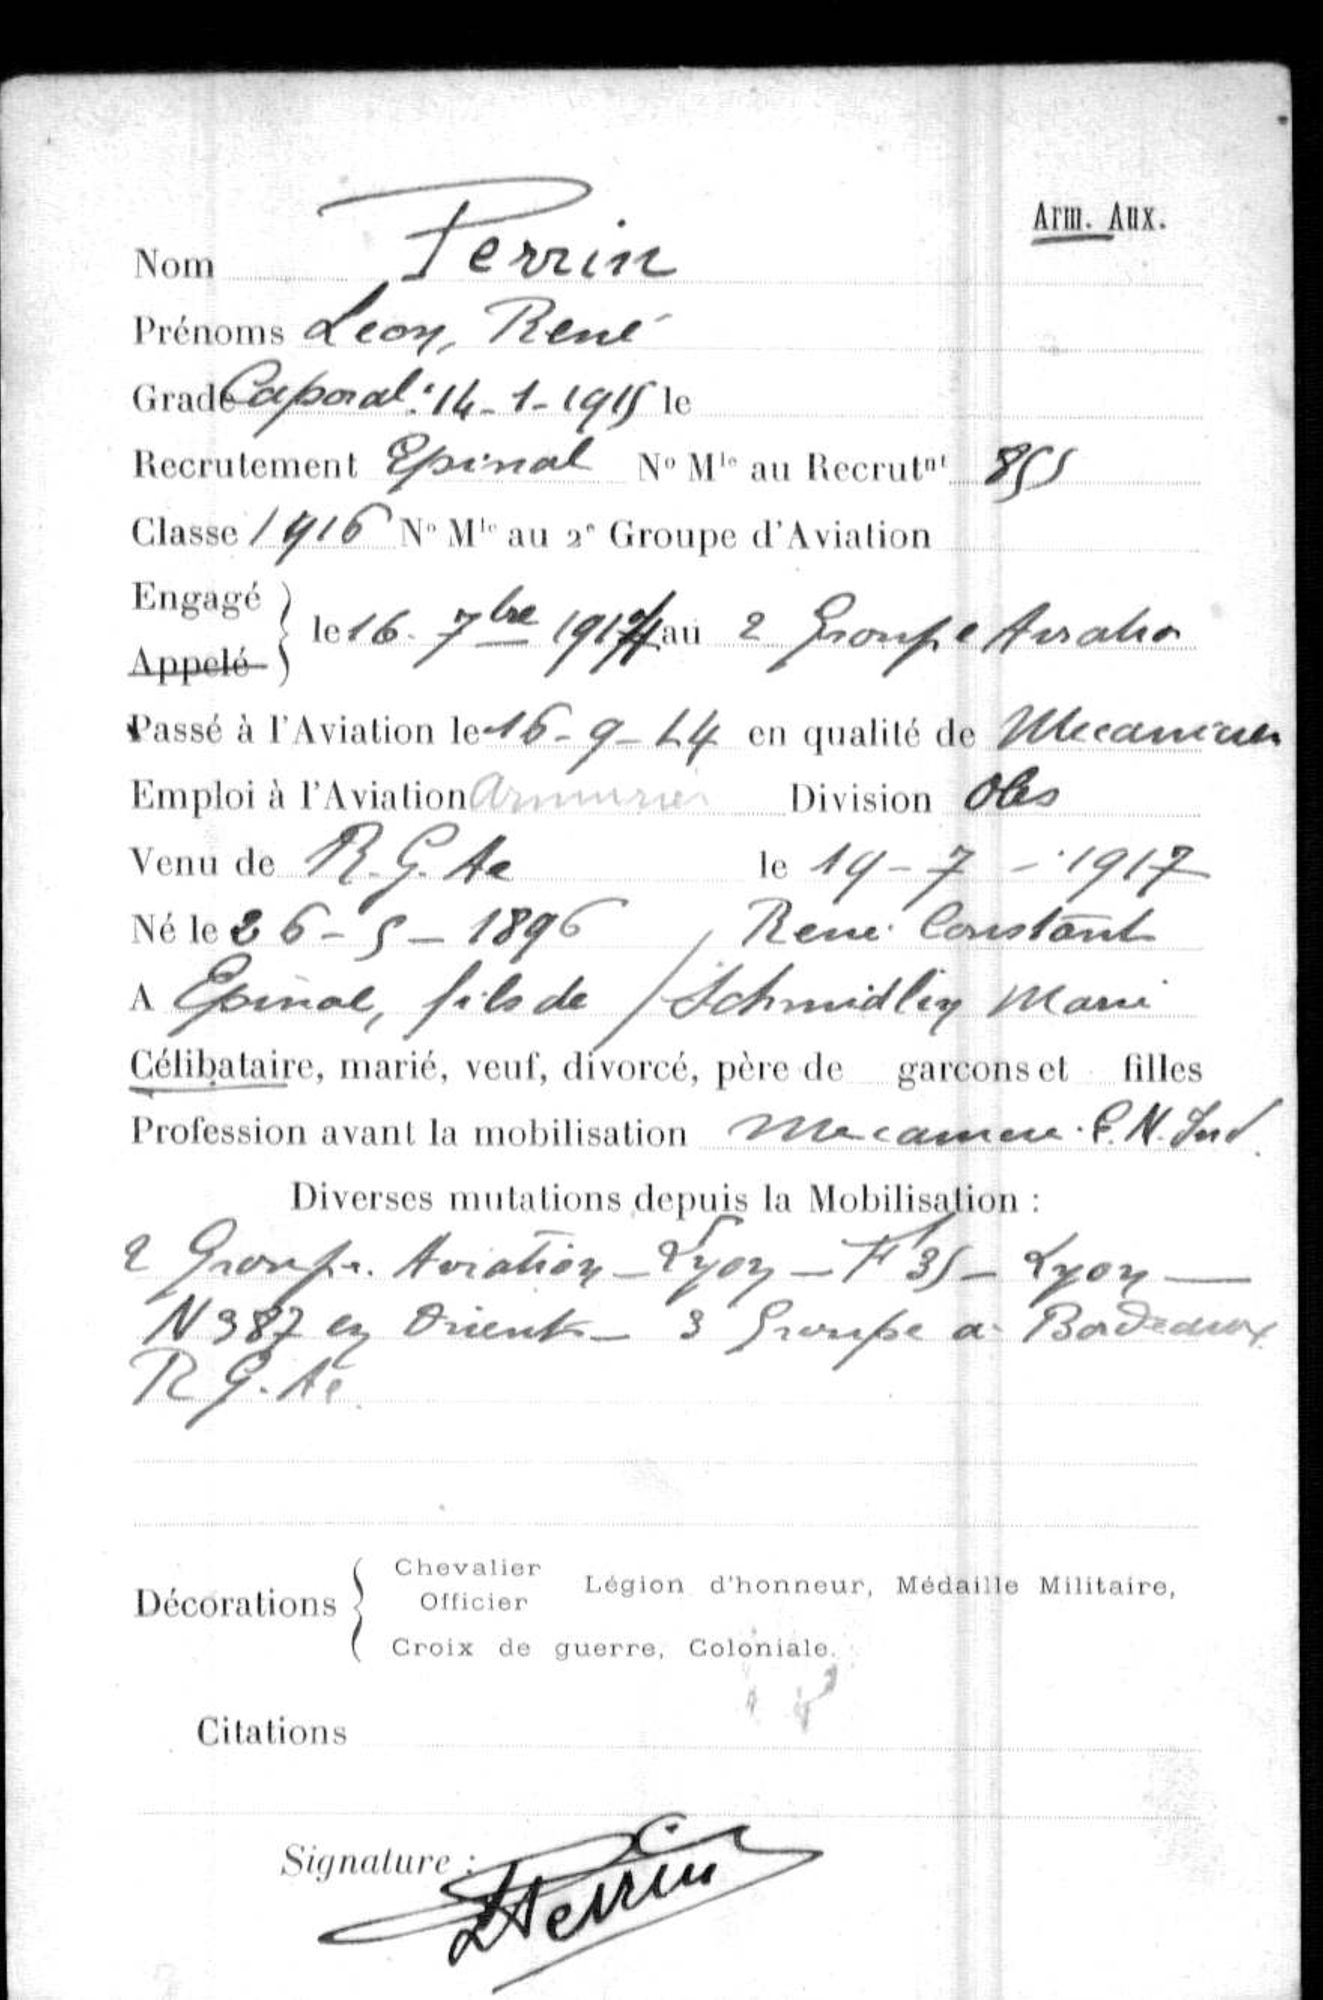 Arm. Aux.
Nom Perrin
Prénoms Leon, René
Grade Caporal : 14-1-1915 le
Recrutement Epinal Nº Mle au Recrutnt 855
Classe 1916 Nº Mle au 2e Groupe d'Aviation
Engagé
Appelé
le 16. 7bre 1914 au 2 Groupe Aviation
Passé à l'Aviation le 16-9-14 en qualité de Mecanicien
Emploi à l'Aviation Armurier Division
Venu de R.G.Ae le 19-7-1917
Né le 26-5-1896 / René Constant
A Epinal, fils de / Schmidlin Marie
Célibataire, marié, veuf, divorcé, père de garçons et filles
Profession avant la mobilisation Mecanicien
Diverses mutations depuis la Mobilisation :
2 Groupe. Aviation - Lyon - F 35 - Lyon —
N 387 en Orient - 3 Groupe a Bordeaux
R G. Ae.
Décorations { Chevalier
Officier
Légion d'honneur, Médaille Militaire,
Croix de guerre, Coloniale.
Citations
Signature :
LPerrin